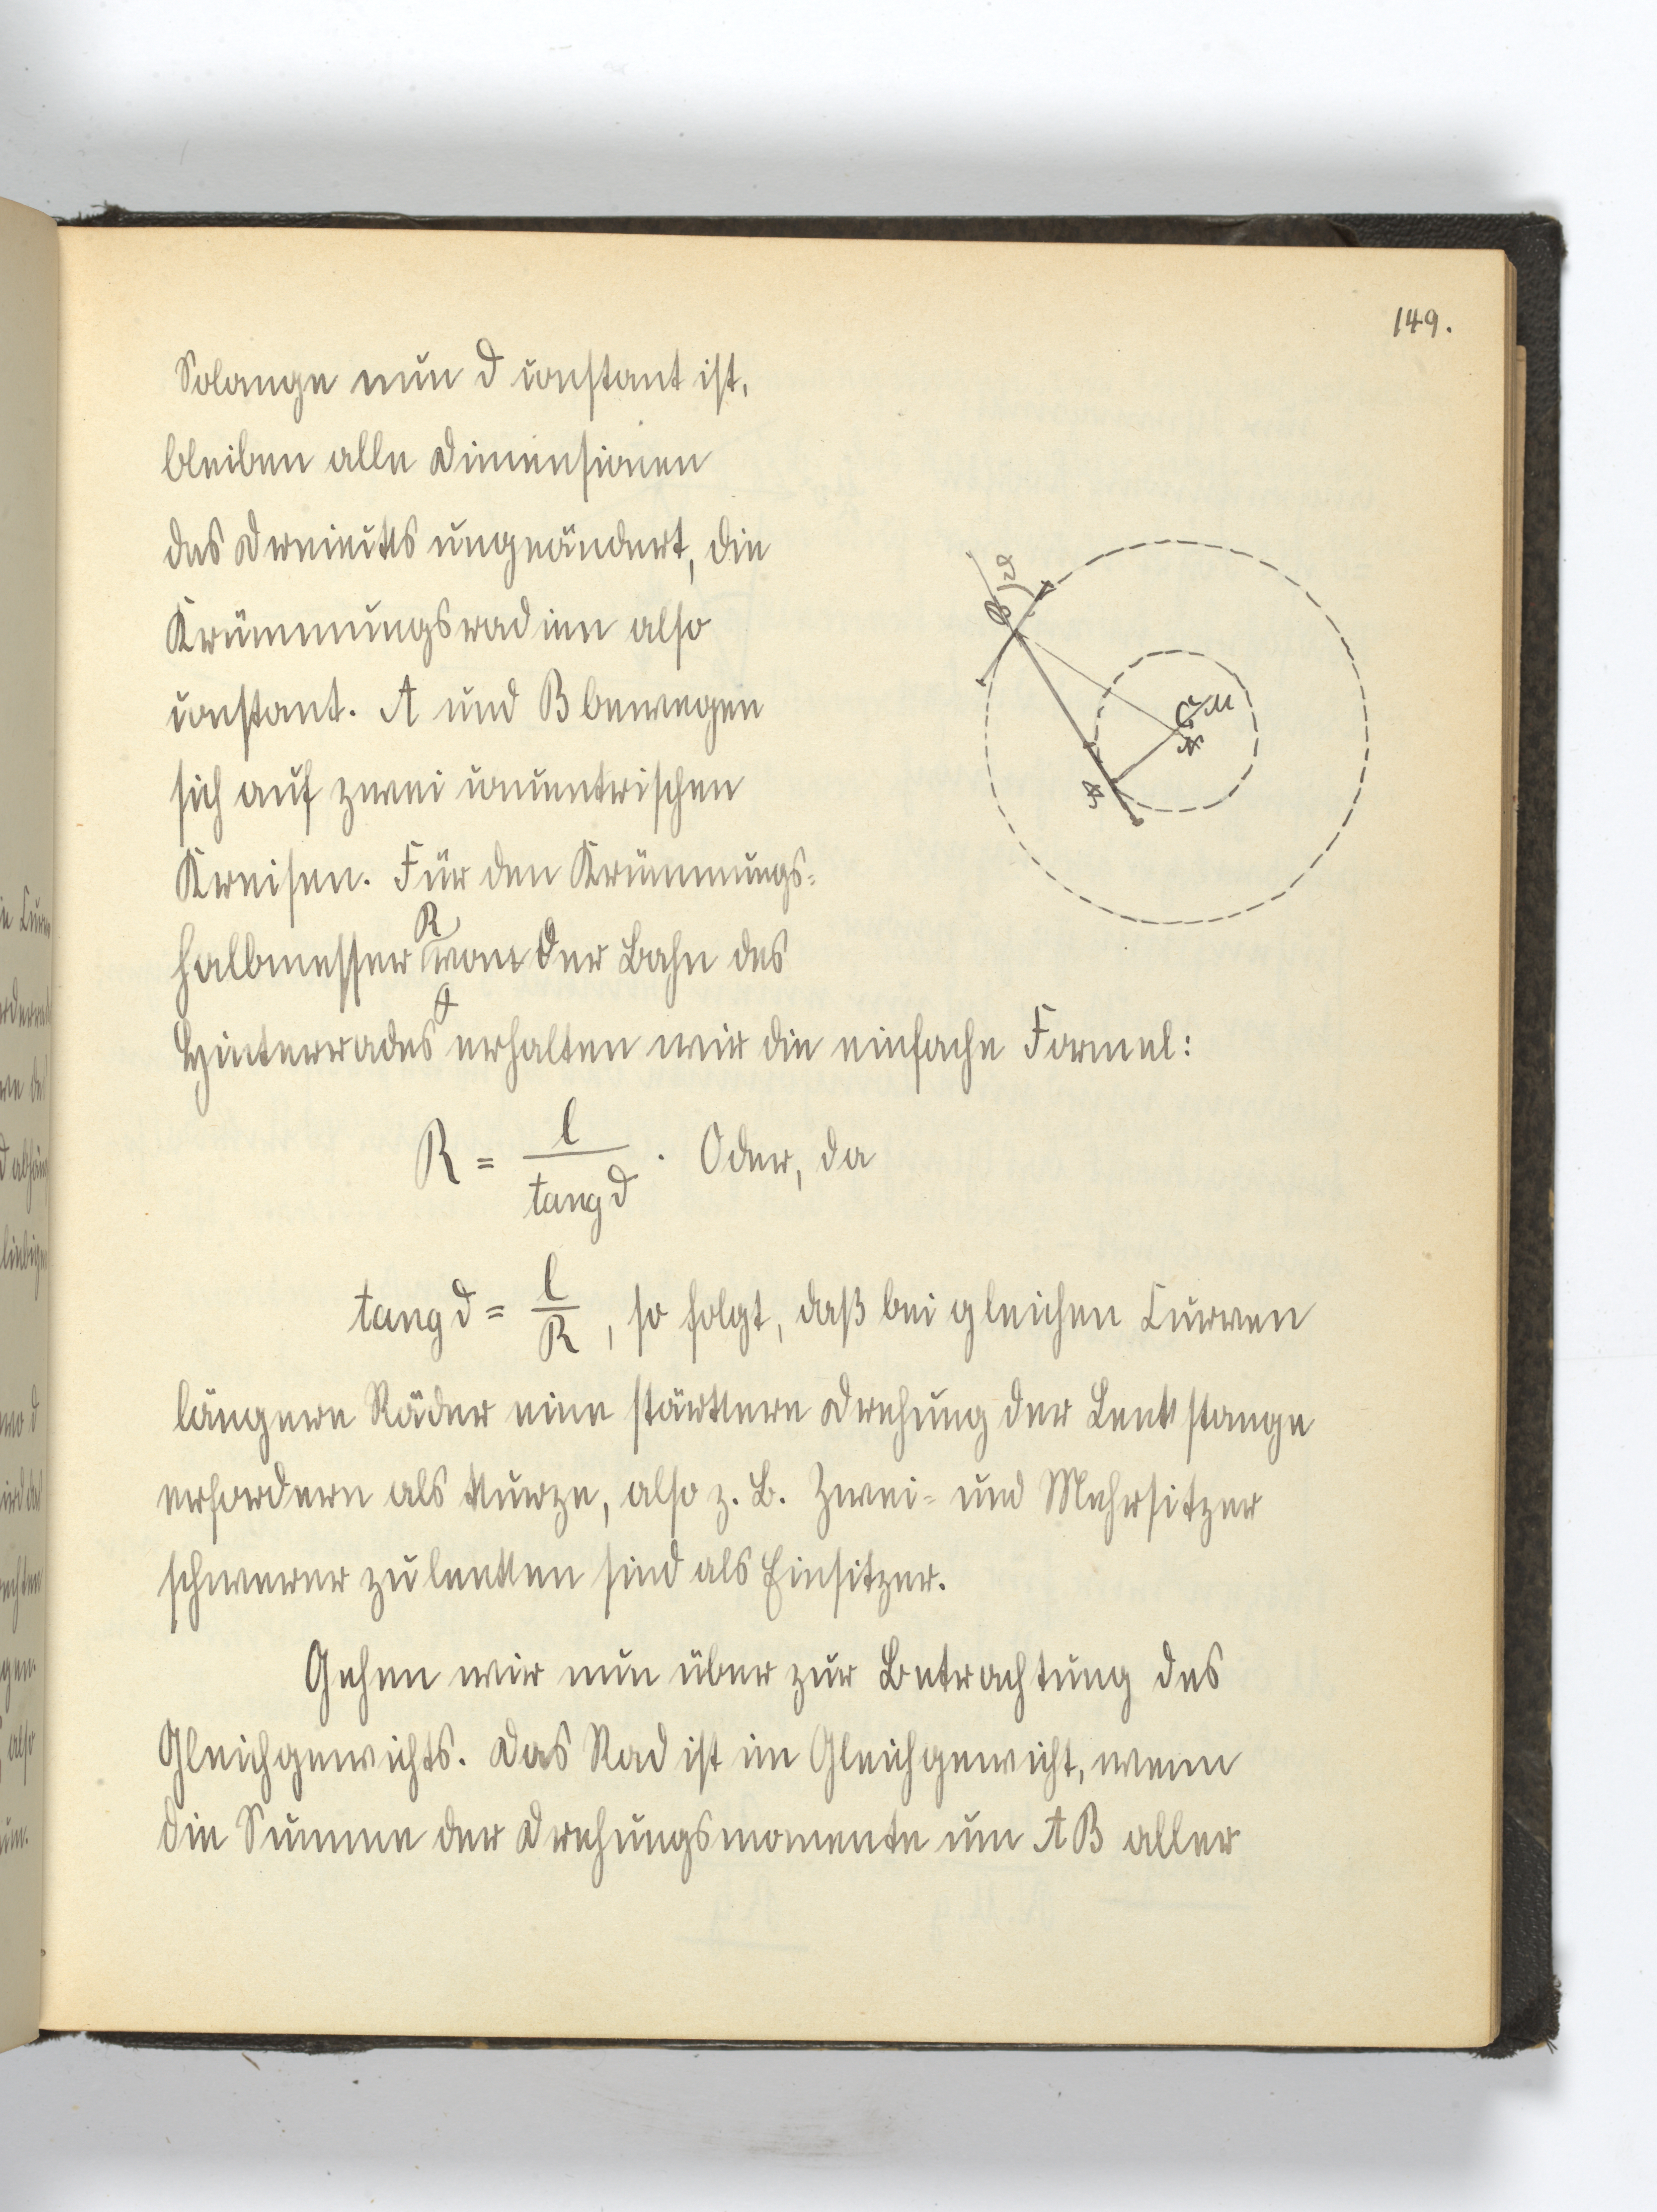 149.
Solange nun ϑ constant ist,
bleiben alle Dimensionen
des Dreiecks ungeändert, die
Krümmungsradien also
constant. A und B bewegen
sich auf zwei concentrischen
Kreisen. Für den Krümmungs-
halbmesser R von der Bahn des
Hinterrades A erhalten wir die einfache Formel:
R = l / tang ϑ . Oder, da
tang ϑ = l / R , so folgt, daß bei gleichen Curven
längere Räder eine stärkere Drehung der Lenkstange
erfordern als kurze, also z. B. Zwei- und Mehrsitzer
schwerer zu lenken sind als Einsitzer.
Gehen wir nun über zur Betrachtung des
Gleichgewichts. Das Rad ist im Gleichgewicht, wenn
die Summe der Drehungsmomente um AB aller
B ϑ
M
A